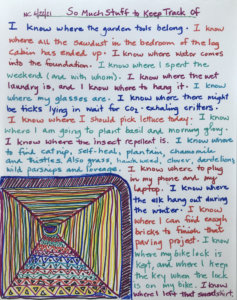 NC 6/21/21 So Much Stuff to Keep Track Of
I know where the garden tools belong. I know
where all the sawdust in the bedroom of the log
cabin has ended up. I know where water comes
into the foundation. I know where I spent the
weekend (and with whom). I know where the wet
laundry is, and I know where to hang it. I know
where my glasses are. I know where there might
be ticks lying in wait for CO₂-exhaling critters.
I know where I should pick lettuce today. I know
where I am going to plant basil and morning glory.
I know where the insect repellent is. I know where
to find catnip, self-heal, plantain, chamomile
and thistles. Also grass, hawkweed, clover, dandelions
wild parsnips and lovage. I know where to plug
in my phone and my
laptop. I know where
the elk hang out during
the winter. I know
where I can find enough
bricks to finish that
paving project. I know
where my bike lock is
kept, and where I keep
the key when the lock
is on my bike. I know
where I left that